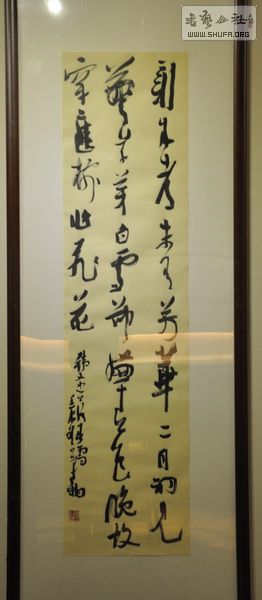 書藝公社
WWW.SHUFA.ORG
新年都未有芳華二月初見
驚草芽白雪卻嫌春色晚故
穿庭樹作飛花